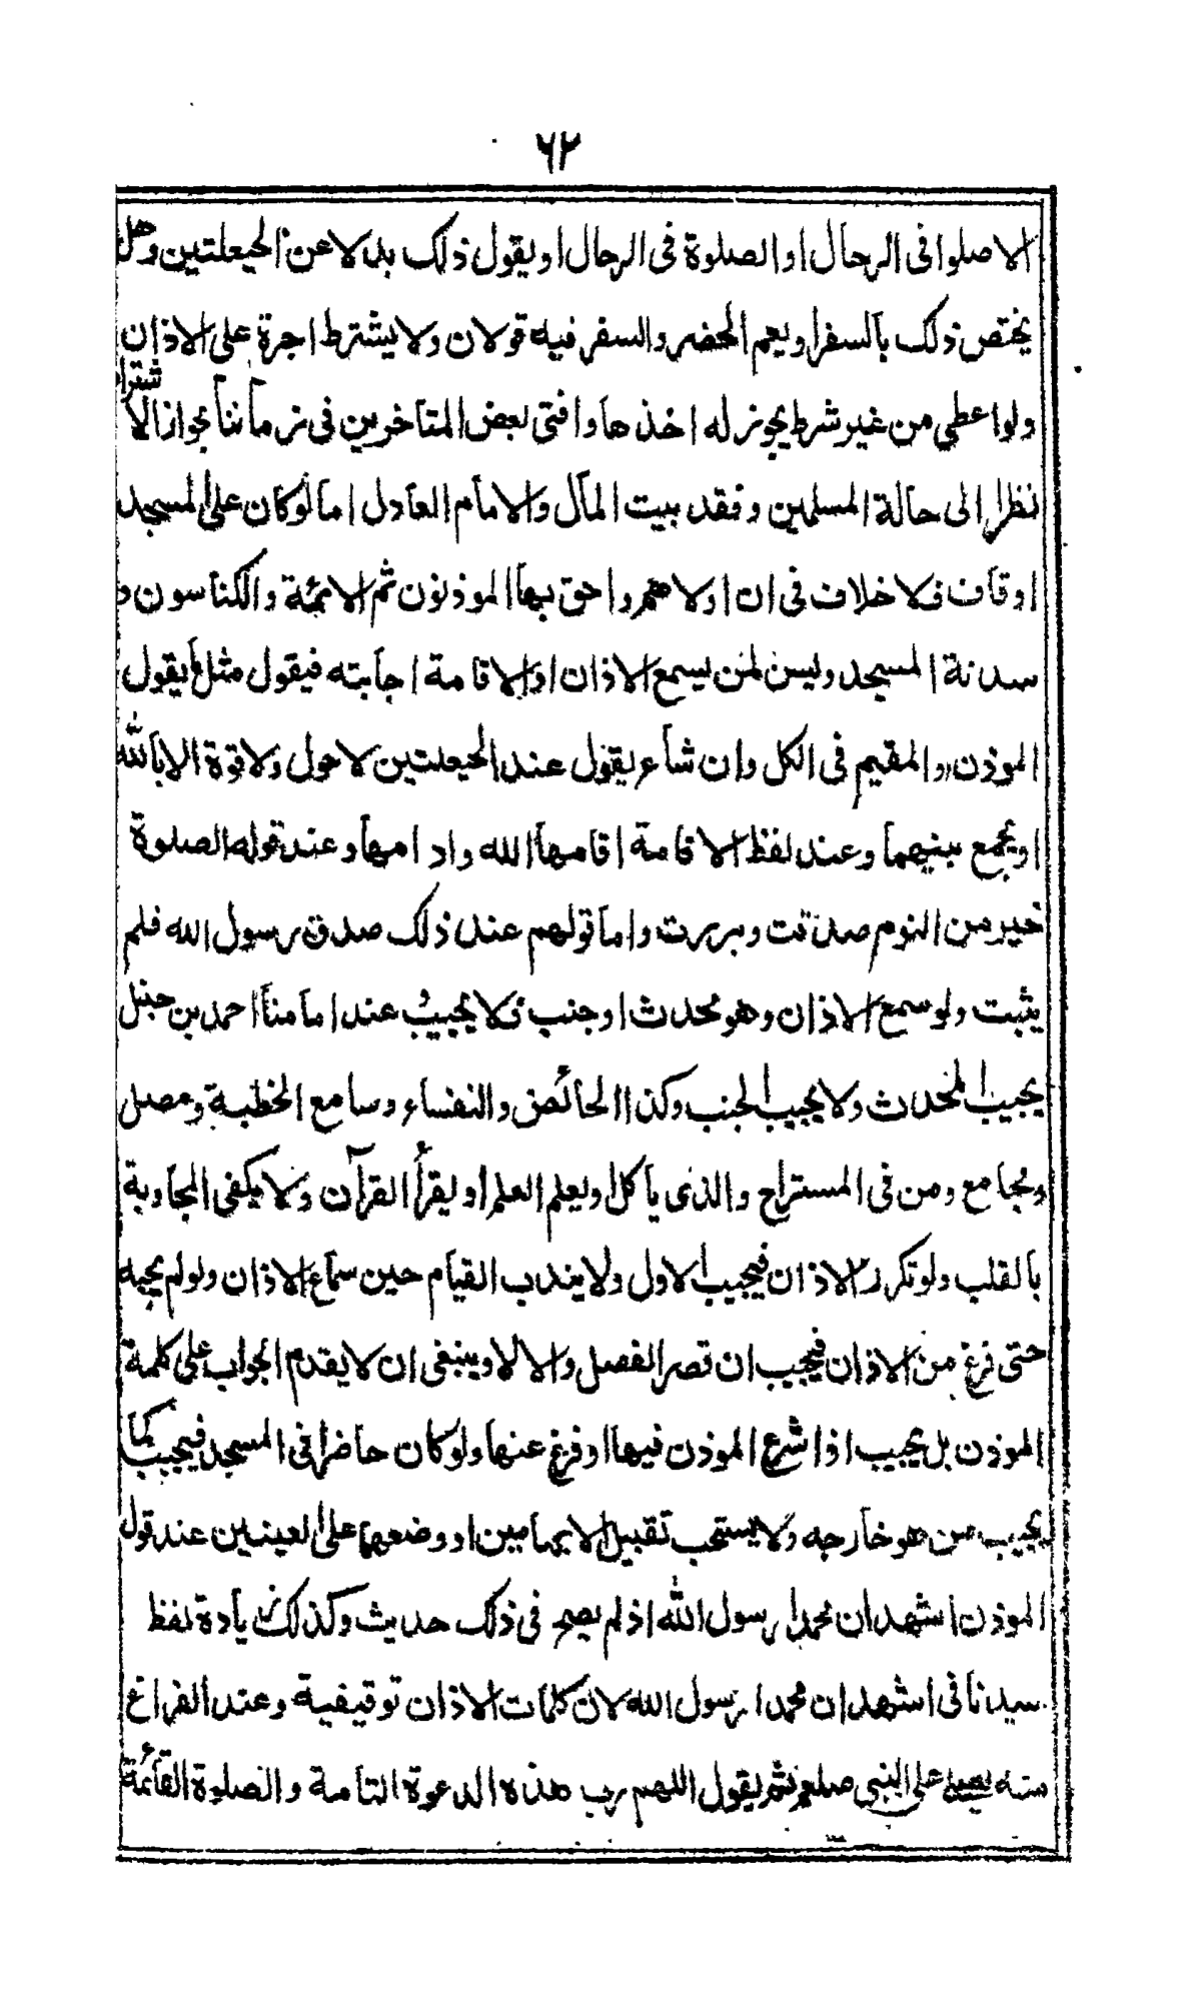 ٦٢
الا صلوا فى الرحال او الصلوة فى الرحال او يقول ذلك بدلا عن الحيعلتين وهل
يختص ذلك بالسفر او يعم الحضر والسفر فيه قولان ولا يشترط اجرة على الاذان
ولو اعطي من غير شرط يجوز له اخذها وافتى بعض المتاخرين فى زماننا بجواز الاشتراط
نظرا الى حالة المسلمين وفقد بيت المال والامام العادل اما لو كان على المسجد
اوقاف فلا خلاف فى ان اولاهم واحق بها الموذنون ثم الائمة والكناسون و
سدنة المسجد ويسن لمن يسمع الاذان او الاقامة اجابته فيقول مثل ما يقول
الموذن والمقيم فى الكل وان شاء يقول عند الحيعلتين لا حول ولا قوة الا بالله
او يجمع بينهما وعند لفظ الاقامة اقامها الله وادامها وعند قوله الصلوة
خير من النوم صدقت وبررت واما قولهم عند ذلك صدق رسول الله فلم
يثبت ولو سمع الاذان وهو محدث او جنب فلا يجيب و عند امامنا احمد بن حنبل
يجيب المحدث ولا يجيب الجنب وكذا الحائض والنفساء وسامع الخطبة ومصل
ومجامع ومن فى المستراح والذى ياكل او يعلم العلم او يقرأ القرآن ولا يكفى المجاوبة
بالقلب ولو تكرر الاذان فيجيب الاول ولا يندب القيام حين سماع الاذان ولو لم يجبه
حتى فرغ من الاذان فيجيب ان قصر الفصل والا لا وينبغى ان لا يقدم الجواب على كلمة
الموذن بل يجيب اذا شرع الموذن فيها او فرغ عنها ولو كان حاضرا فى المسجد فيجيب كما
يجيب من هو خارجه ولا يستحب تقبيل الابهامين او وضعهما على العينين عند قول
الموذن اشهد ان محمدا رسول الله اذ لم يصح فى ذلك حديث وكذلك زيادة لفظ
سيدنا فى اشهد ان محمدا رسول الله لان كلمات الاذان توقيفية وعند الفراغ
منه يصلى على النبى صلعم ثم يقول اللهم رب هذه الدعوة التامة والصلوة القائمة